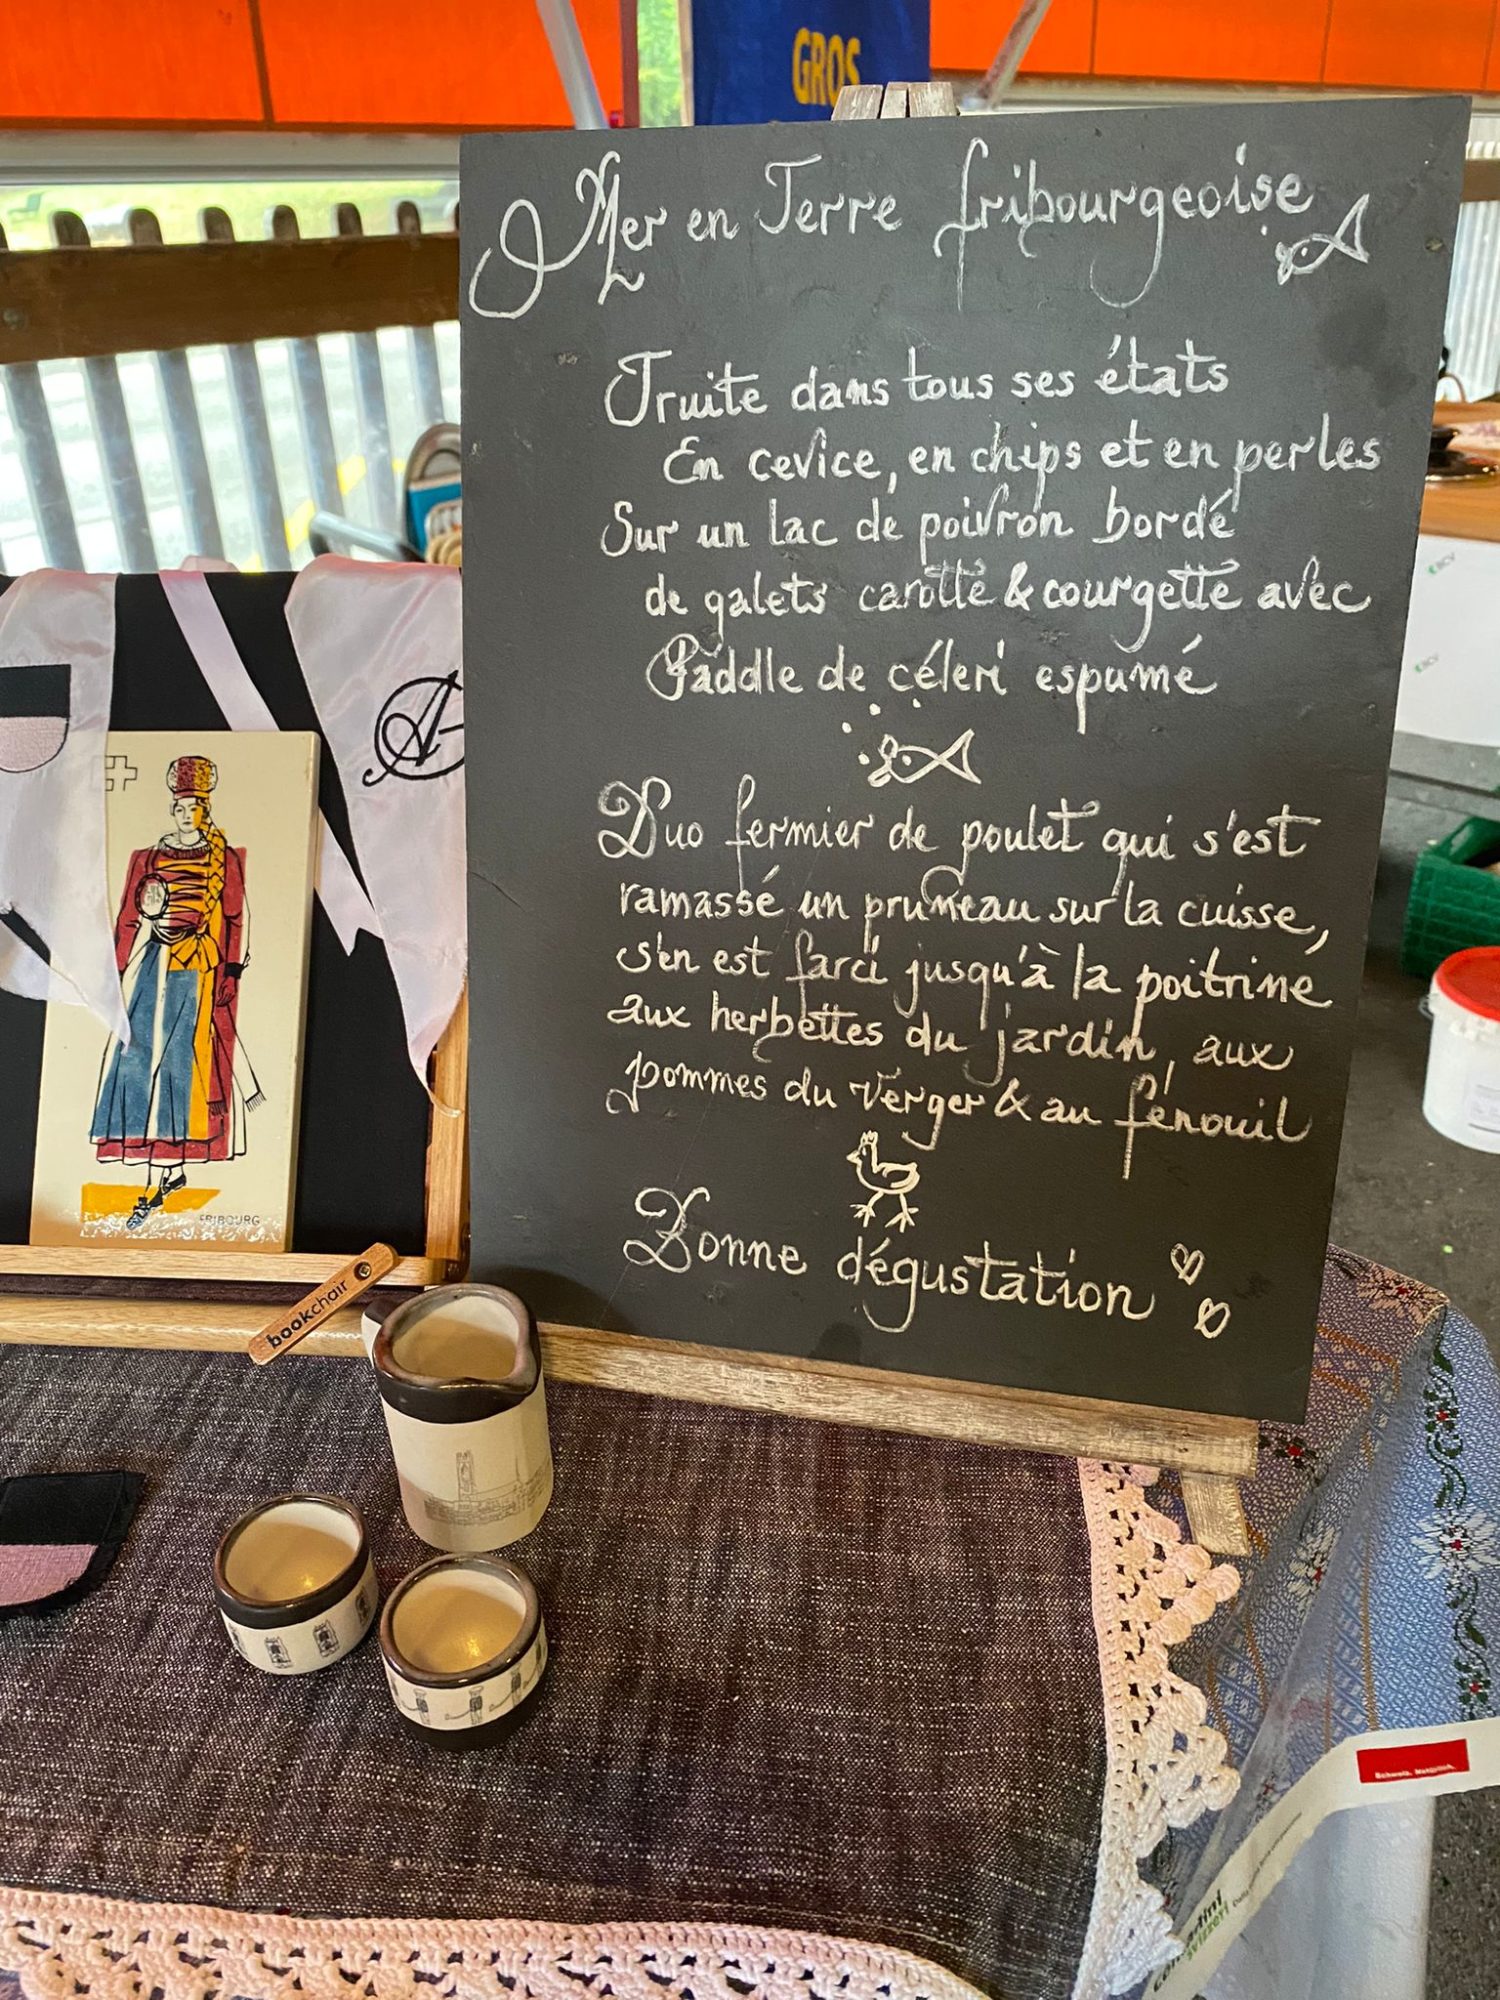 GROS
Mer en Terre fribourgeoise
Truite dans tous ses états
En cevice, en chips et en perles
Sur un lac de poivron bordé
de galets carotte & courgette avec
Paddle de céleri espumé
Duo fermier de poulet qui s'est
ramassé un pruneau sur la cuisse,
s'en est farci jusqu'à la poitrine
aux herbettes du jardin, aux
pommes du verger & au fenouil
Bonne dégustation
FRIBOURG
bookchair
Schweiz. Natürlich.